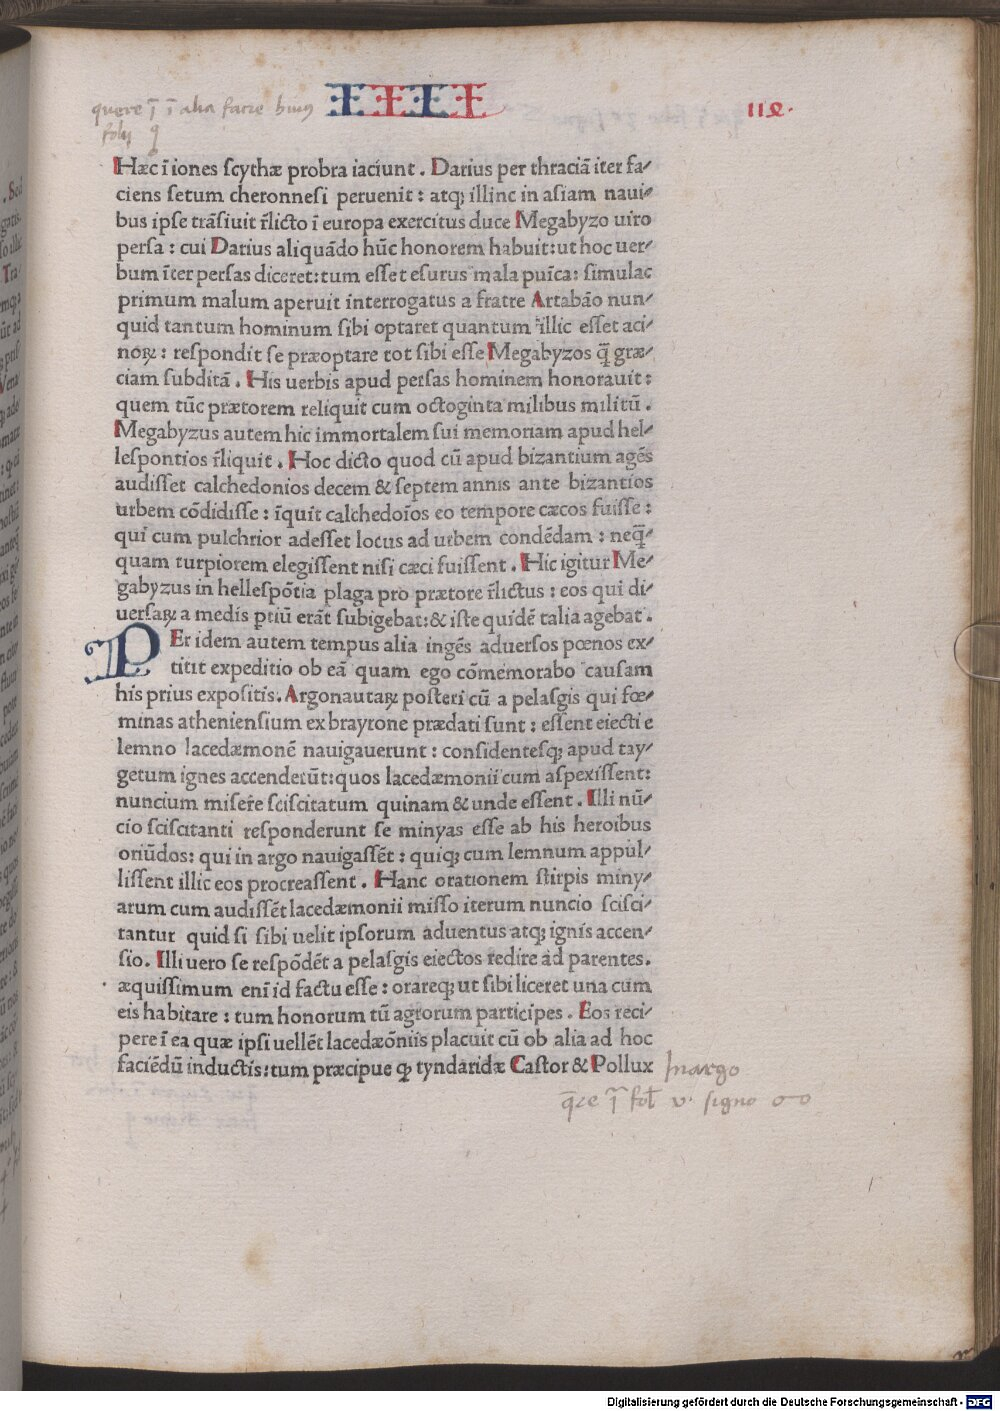 IIII
quere ī ī alia facie huius
folij
Hæc ī iones scythæ probra iaciunt. Darius per thraciā iter fa⸗
ciens setum cheronnesi peruenit: atqꝫ illinc in asiam naui⸗
bus ipse trāsiuit r̄licto ī europa exercitus duce Megabyzo uiro
persa: cui Darius aliquādo hūc honorem habuit: ut hoc uer⸗
bum īter persas diceret: tum esset esurus mala puīca: simulac
primum malum aperuit interrogatus a fratre Artabāo nun⸗
quid tantum hominum sibi optaret quantum illic esset aci⸗
noꝝ: respondit se præoptare tot sibi esse Megabyzos q̄ græ⸗
ciam subditā. His uerbis apud persas hominem honorauit:
quem tūc prætorem reliquit cum octoginta milibus militū.
Megabyzus autem hic immortalem sui memoriam apud hel⸗
lespontios r̄liquit. Hoc dicto quod cū apud bizantium agēs
audisset calchedonios decem & septem annis ante bizantios
urbem cōdidisse: īquit calchedoīos eo tempore cæcos fuisse:
qui cum pulchrior adesset locus ad urbem condēdam: neq̄⸗
quam turpiorem elegissent nisi cæci fuissent. Hic igitur Me⸗
gabyzus in hellespōtia plaga pro prætore r̄lictus: eos qui di⸗
uersaꝝ a medis ꝑtiū erāt subigebat: & iste quidē talia agebat.
PEr idem autem tempus alia ingēs aduersos pœnos ex⸗
titit expeditio ob eā quam ego cōmemorabo causam
his prius expositis. Argonautaꝝ posteri cū a pelasgis qui fœ⸗
minas atheniensium ex brayrone prædati sunt: essent eiecti e
lemno lacedæmonē nauigauerunt: considentesqꝫ apud tay⸗
getum ignes accenderūt: quos lacedæmonii cum aspexissent:
nuncium misere sciscitatum quinam & unde essent. Illi nū⸗
cio sciscitanti responderunt se minyas esse ab his heroibus
oriūdos: qui in argo nauigassēt: quiqꝫ cum lemnum appul⸗
lissent illic eos procreassent. Hanc orationem stirpis miny⸗
arum cum audissēt lacedæmonii misso iterum nuncio scisci⸗
tantur quid si sibi uelit ipsorum aduentus atqꝫ ignis accen⸗
sio. Illi uero se respōdēt a pelasgis eiectos redire ad parentes.
æquissimum enī id factu esse: orareqꝫ ut sibi liceret una cum
eis habitare: tum honorum tū agrorum participes. Eos reci⸗
pere ī ea quæ ipsi uellēt lacedæōniis placuit cū ob alia ad hoc
faciēdū inductis: tum præcipue ꝙ tyndaridæ Castor & Pollux
In argo
q̄re ī fol v. signo
Digitalisierung gefördert durch die Deutsche Forschungsgemeinschaft - DFG